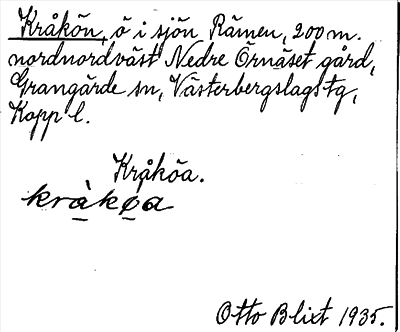 Kråkön, ö i sjön Rämen, 200 m.
nordnordväst Nedre Örnäset gård,
Grangärde sn, Västerbergslags tg,
Kopp l.
Kråköa.
kràkøa
Otto Blixt 1935.